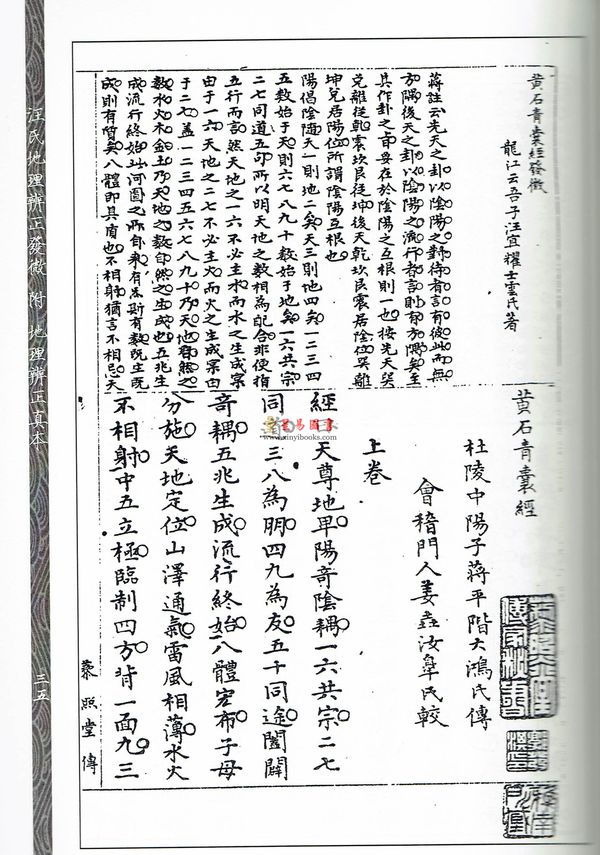 黄石青囊經發微
龍江云吾子汪宜耀士雲氏著
蔣註云先天之卦以陰陽之對待者言有彼此而無
方隅後天之卦以陰陽之流行者言則有方隅矣至
其作卦之旨要在於陰陽之互根則一也按先天巽
兌離從乾震艮坎從坤後天乾坎艮震居陰位巽離
坤兌居陽位所謂陰陽互根也
陽倡陰隨天一則地二矣天三則地四矣一二三四
五數始于天則六七八九十數始于地矣一六共宗
二七同道五句所以明天地之數相為配合非使指
五行而言然天地之一六不必主水而水之生成寔
由于一六天地之二七不必主火而火之生成寔由
于二七蓋一二三四五六七八九十乃天地自然之
數水火木金土乃天地之數自然之生成也五兆生
成流行終始此河圖之所自來有氣斯有數既生既
成則有質矣八體即具有也不相射猶言不相忌天
黄石青囊經
杜陵中陽子蔣平階大鴻氏傳
會稽門人姜垚汝皐氏較
上卷
經曰天尊地卑陽奇陰耦一六共宗二七
同道三八為朋四九為友五十同途闔闢
奇耦五兆生成流行終始八體宏布子母
分施天地定位山澤通氣雷風相薄水火
不相射中五立極臨制四方背一面九三
蔡照堂傳
汪氏地理辨正發微 附 地理辨正真本
三五
星易圖書
www.xinyibooks.com